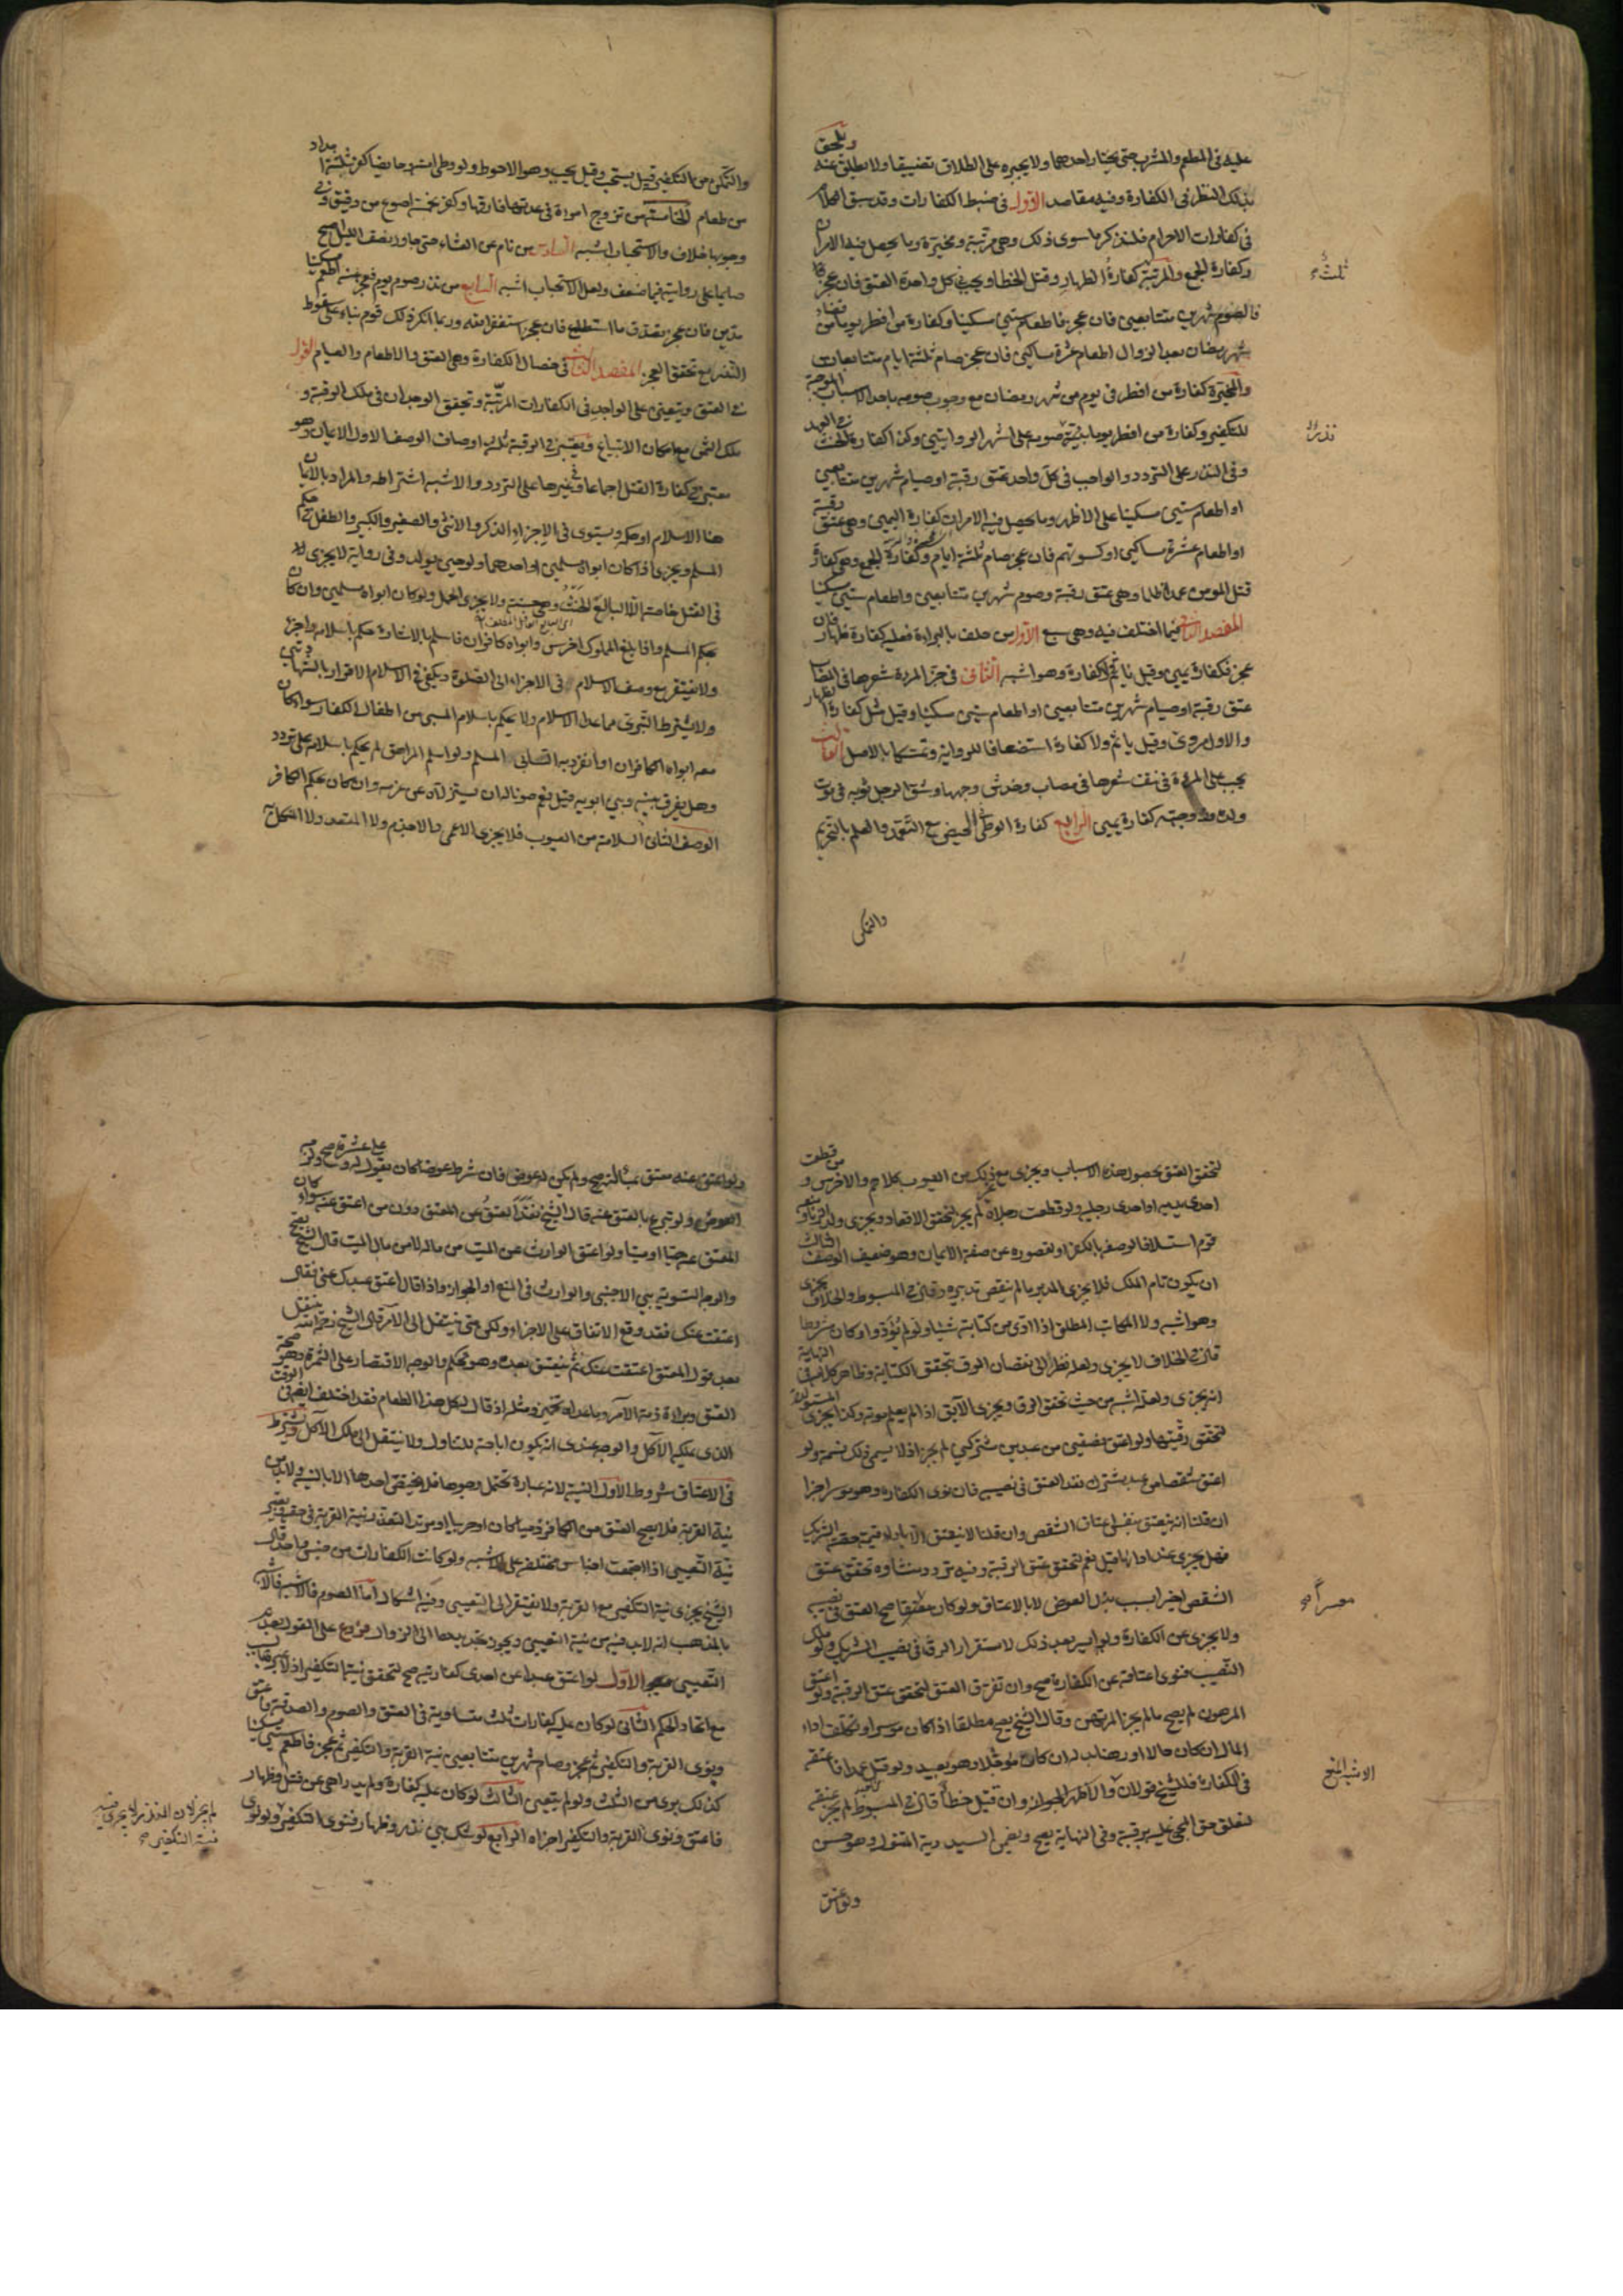 عليه في المطعم والمشرب حتى يختار احدهما ولا يجبره على الطلاق تضييقا ولا يطلق عنه ويلحق
بذلك النظر في الكفارة وفيه مقاصد الاول في ضبط الكفارات وقد سبق الكلام
في كفارات الاحرام فلنذكر ما سوى ذلك وهي مرتبة ومخيرة وما يحصل فيه الامران
وكفارة الجمع والمرتبة كفارة الظهار وقتل الخطا ويجب في كل واحدة العتق فان عجز
ثلث
فالصوم شهرين متتابعين فان عجز فاطعام ستين مسكينا وكفارة من افطر يوما من قضاء
شهر رمضان بعد الزوال اطعام عشرة مساكين فان عجز صام ثلثة ايام متتابعات
والمخيرة كفارة من افطر في يوم من شهر رمضان مع وجوب صومه باحد الاسباب الموجبة
للتكفير وكفارة من افطر يوما نذر صومه على اشهر الروايتين وكذا كفارة الحنث في العهد
نذر
وفي النذر على التردد والواجب في كل واحد عتق رقبة او صيام شهرين متتابعين
او اطعام ستين مسكينا على الاظهر وما يحصل فيه الامران كفارة اليمين وهي عتق رقبة
او اطعام عشرة مساكين او كسوتهم فان عجز صام ثلثة ايام وكفارة الجمع وهي كفارة
قتل المومن عمدا ظلما وهي عتق رقبة وصوم شهرين متتابعين واطعام ستين مسكينا
المقصد الثاني فيما اختلف فيه وهي سبع الاول من حلف بالبراءة فعليه كفارة ظهار فان
عجز فكفارة يمين وقيل ياثم ولا كفارة وهو اشبه الثاني في جز المرءة شعرها في المصاب
عتق رقبة او صيام شهرين متتابعين او اطعام ستين مسكينا وقيل مثل كفارة الظهار
والاول مروي وقيل ياثم ولا كفارة استضعافا للرواية وتمسكا بالاصل الثالث
يجب على المرءة في نتف شعرها في مصاب وخدش وجهها وشق الرجل ثوبه في موت
ولده وزوجته كفارة يمين الرابع كفارة الوطي في الحيض مع التعمد والعلم بالتحريم
والتمكن
والتمكن من التكفير قيل يستحب وقيل يجب وهو الاحوط ولو وطي امته حايضا كفر بثلثة امداد
من طعام الخامسة من تزوج امراة في عدتها فارقها وكفر بخمسة اصوع من دقيق وفي
وجوبها خلاف والاستحباب اشبه السادس من نام عن العشاء حتى جاوز نصف الليل اصبح
صايما على رواية فيها ضعف ولعل الاستحباب اشبه السابع من نذر صوم يوم فعجز عنه اطعم مسكينا
مدين فان عجز تصدق ما استطاع فان عجز استغفر الله وربما انكر ذلك قوم بناء على سقوط
النذر مع تحقق العجز المقصد الثالث في خصال الكفارة وهي العتق والاطعام والصيام القول
في العتق ويتعين على الواجد في الكفارات المرتبة وتحقق الوجدان في ملك الرقبة و
ملك الثمن مع امكان الابتياع ويعتبر في الرقبة ثلثة اوصاف الوصف الاول الايمان وهو
معتبر في كفارة القتل اجماعا وفي غيرها على التردد والاشبه اشتراطه والمراد بالايمان
هنا الاسلام او حكمه ويستوي في الاجزاء الذكر والانثى والصغير والكبير والطفل في حكم
المسلم ويجزي اذا كان ابواه مسلمين او احدهما ولو حين يولد وفي رواية لا يجزي
في القتل خاصة الا البالغ الحنث وهي حسنة ولا يجزي الحمل ولو كان ابواه مسلمين وان كان
بحكم المسلم واذا بلغ المملوك اخرس وابواه كافران فاسلم بالاشارة حكم باسلامه واجزا
ولا يفتقر مع وصف الاسلام في الاجزاء الى الصلوة ويكفي في الاسلام الاقرار بالشهادتين
ولا يشترط التبري مما عدا الاسلام ولا يحكم باسلام المسبي من اطفال الكفار سواء كان
معه ابواه الكافران او انفرد به السابي المسلم ولو اسلم المراهق لم يحكم باسلامه على تردد
وهل يفرق بينه وبين ابويه قيل نعم صونا له ان يستزلاه عن عزمه وان كان بحكم الكافر
الوصف الثاني السلامة من العيوب فلا يجزي الاعمى ولا الاجذم ولا المقعد ولا المنكل به
لتحقق العتق بحصول هذه الاسباب ويجزي مع غير ذلك من العيوب كالاصم والاخرس و من قطعت
احدى يديه او احدى رجليه ولو قطعت رجلاه لم يجز لتحقق الاقعاد ويجزي ولد الزنا ومنعه
قوم استسلافا لوصفه بالكفر او لقصوره عن صفة الايمان وهو ضعيف الوصف الثالث
ان يكون تام الملك فلا يجزي المدبر ما لم ينقض تدبيره وقال في المبسوط والخلاف يجزي
وهو اشبه ولا المكاتب المطلق اذا ادى من كتابته شيئا ولو لم يؤد او كان مشروطا
قال في الخلاف لا يجزي ولعله نظر الى نقصان الرق بتحقق الكتابة وظاهر كلامه في النهاية
انه يجزي ولعله اشبه من حيث تحقق الرق ويجزي الآبق اذا لم يعلم موته وكذا يجزي المستولدة
لتحقق رقيتها ولو اعتق نصفين من عبدين مشتركين لم يجز اذ لا يسمى ذلك نسمة ولو
اعتق شقصا من عبد مشترك نفذ العتق في نصيبه فان نوى الكفارة وهو موسر اجزا
ان قلنا انه ينعتق بنفس اعتاق الشقص وان قلنا لا ينعتق الا باداء قيمة حصة الشريك
فهل يجزي عند ادائها قيل نعم لتحقق عتق الرقبة وفيه تردد منشاوه تحقق عتق
الشقص اخيرا بسبب بذل العوض لا بالاعتاق ولو كان معسرا صح العتق في نصيبه
معسرا صح
ولا يجزي عن الكفارة ولو ايسر بعد ذلك لاستقرار الرق في نصيب الشريك ولو ملك
النصيب فنوى اعتاقه عن الكفارة صح وان تفرق العتق لتحقق عتق الرقبة ولو اعتق
المرهون لم يصح ما لم يجز المرتهن وقال الشيخ يصح مطلقا اذا كان موسرا وتكلف اداء
المال ان كان حالا او رهنا بدله ان كان مؤجلا وهو بعيد ولو قتل عمدا فاعتقه
الاشبه المنع
في الكفارة فللشيخ قولان والاظهر الجواز وان قتل خطأ قال في المبسوط لم يجز عتقه
لتعلق حق المجني عليه برقبته وفي النهاية يصح ويضمن السيد دية المقتول وهو حسن
ولو اعتق
ولو اعتق عنه معتق بمسألته صح ولم يكن له عوض فان شرط عوضا كان يقول له وعلي عشرة صح ولزمه
العوض ولو تبرع بالعتق عنه قال الشيخ نفذ العتق عن المعتق دون من اعتق عنه سواء كان
المعتق عنه حيا او ميتا ولو اعتق الوارث عن الميت من ماله لا من مال الميت قال الشيخ يصح
والوجه التسوية بين الاجنبي والوارث في المنع او الجواز واذا قال اعتق عبدك عني فقال
اعتقت عنك فقد وقع الاتفاق على الاجزاء ولكن متى ينتقل الى الآمر قال الشيخ رحمه الله ينتقل
بعد قول المعتق اعتقت عنك ثم ينعتق بعده وهو تحكم والوجه الاقتصار على الثمرة وهو صحة
العتق وبراءة ذمة الآمر وما عداه تخمين ومثله اذ قال له كل هذا الطعام فقد اختلف ايضا في الوقت
الذي يملكه الآكل والوجه عندي انه يكون اباحة للتناول ولا ينتقل الى ملك الآكل ويشترط
في الاعتاق شروط الاول النية لانه عبارة تحتمل وجوها فلا يختص احدها الا بالنية ولا بد من
نية القربة فلا يصح العتق من الكافر ذميا كان او حربيا او مرتدا لتعذر نية القربة في حقه ويعتبر
نية التعيين اذا اجتمعت اجناس مختلفة على الاشبه ولو كانت الكفارات من جنس واحد قال
الشيخ يجزي نية التكفير مع القربة ولا يفتقر الى التعيين وفيه اشكال اما الصوم فالاشبه
بالمذهب انه لا بد فيه من نية التعيين ويجوز تجديدها الى الزوال فروع على القول بعدم
التعيين الاول لو اعتق عبدا عن احدى كفارتيه صح لتحقق نية التكفير اذ لا عبرة
مع اتحاد الحكم الثاني لو كان عليه كفارات ثلث متساوية في العتق والصوم والصدقة فاعتق
ونوى القربة والتكفير ثم عجز وصام شهرين متتابعين بنية القربة والتكفير ثم عجز فاطعم ستين مسكينا
كذلك بري من الثلث ولو لم يتعين الثالث لو كان عليه كفارة ولم يدر اهي عن قتل او ظهار
فاعتق ونوى القربة والتكفير اجزاه الرابع لو شك بين نذر وظهار فنوى التكفير
لم يجز لان النذر لا يجزي فيه
نية التكفير صح